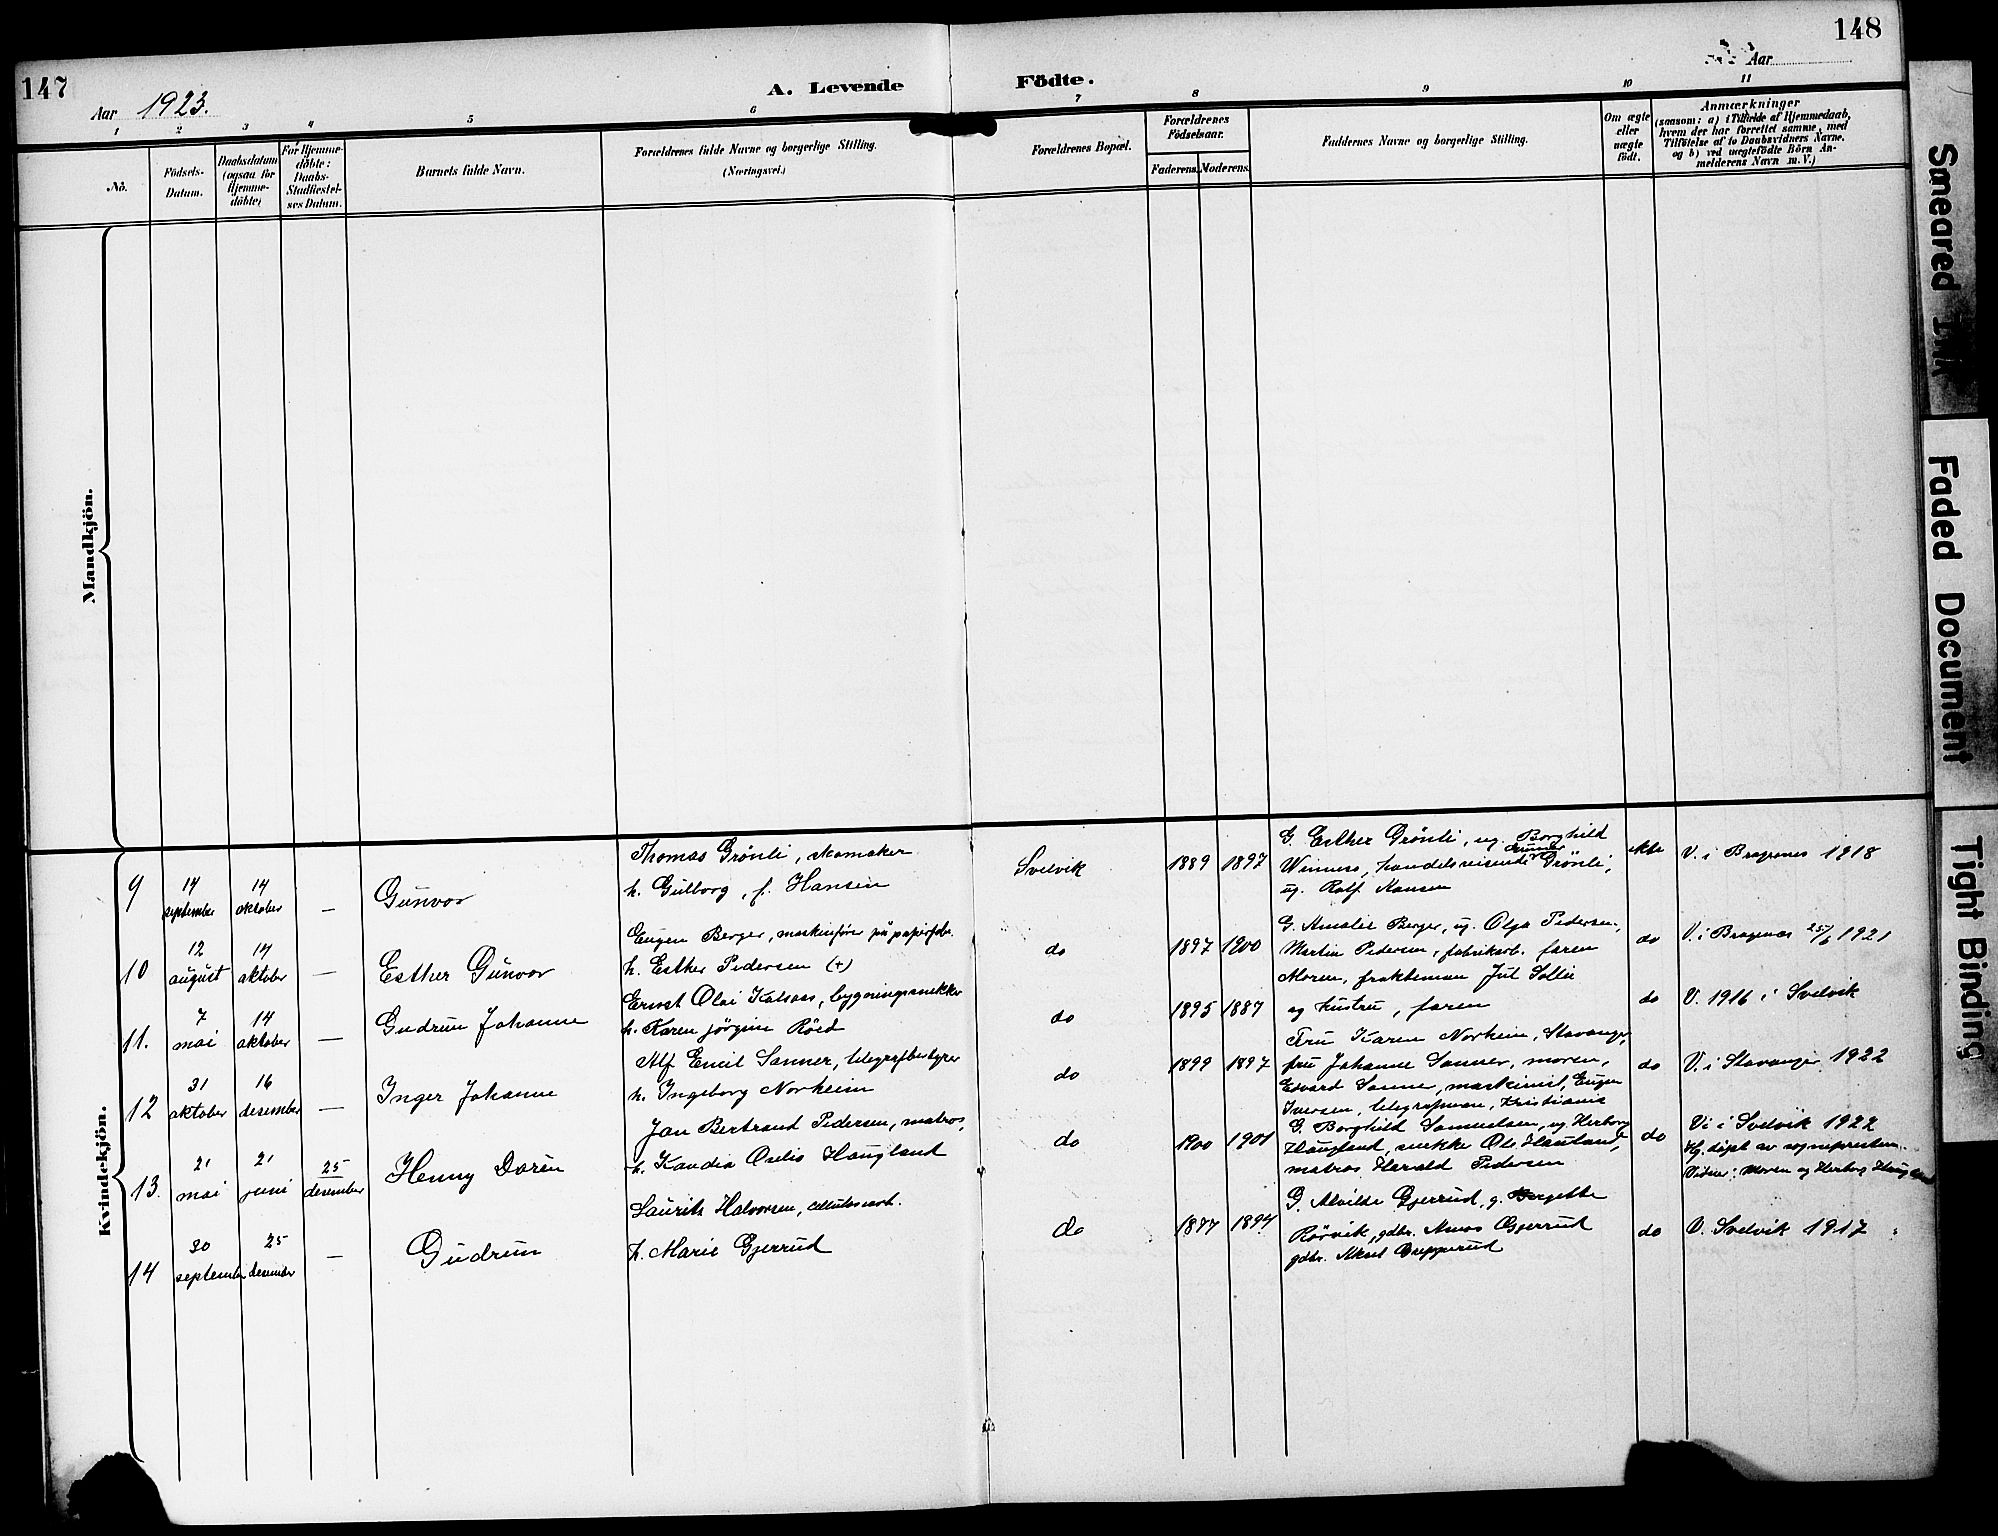 147
Aar 1923.
A. Levende
Födte.
148
Aar
1
2
3
4
5
6
7
8
9
10
11
No.
Födsels-
Datum.
Daabsdatum
(ogsaa for
Hjemme-
döbte)
For Hjemme-
döbte:
Daabs-
Stadfæstel-
ses Datum.
Barnets fulde Navn.
Forældrenes fulde Navne og borgerlige Stilling.
(Næringsvei.)
Forældrenes Bopæl.
Forældrenes
Födselsaar.
Faderens.
Moderens.
Faddernes Navne og borgerlige Stilling.
Om ægte
eller
uægte
födt.
Anmærkninger
(saasom: a) i Tilfælde af Hjemmedaab,
hvem der har forrettet samme, med
Tilföielse af to Daabsvidners Navne,
og b) ved uægtefödte Börn An-
melderens Navn m. V.)
Mandkjön.
Kvindekjön.
9
14
september
14
oktober
—
Gunvor
Thomas Grönli, skomaker
h. Gulborg, f. Hansen
Svelvik
1889
1897
G. Esther Grönli, ug. Borghild
Winness, handelsreisende Gunnar Grönli,
ug. Rolf Hansen
ekte
V. i Bragenes 1918
10
12
august
14
oktober
—
Esther Gunvor
Eugen Berger, maskinförer på papirfabr.
h. Esther Pedersen (+)
do
1897
1900
G. Amalie Berger, ug. Olga Pedersen,
Martin Pedersen, fabrikarb. faren
do
V. i Bragenes 25/6 1921
11.
7
mai
14
oktober
—
Gudrun Johanne
Ernst Olai Kalsaas, bygningssnekker
h. Karen Jörgine Röed
do
1895
1887
Moren, fraktemann Jul Sollie
og hustru, faren
do
V. 1916 i Svelvik
12
31
oktober
16
desember
—
Inger Johanne
Alf Emil Sanner, telegrafbestyrer
h. Ingeborg Norheim
do
1899
1897
Fru Karen Norheim, Stavanger,
fru Johanne Sanner, moren,
Edvard Sanne, maskinist, Eugen
Iversen, telegrafmann, Kristiania
do
V. i Stavanger 1922
13.
21
mai
21
juni
25
desember
Henny Doren
Jan Bertrand Pedersen, matros,
h. Kandia Otelie Haugland
do
1900
1901
G. Borghild Samuelsen, ug Herborg
Haugland, snekke Ole Haugland,
matros Harald Pedersen
do
Vi i Svelvik 1922
Hj. döpt av sognepresten.
Vidner: Moren og Herborg Haugland
14
30
september
25
desember
—
Gudrun
Laurits Halvorsen, cellulosearb.
h. Marie Gjerrud
do
1877
1894
G. Alvilde Gjerrud, g. Bergette
Rörvik, gdbr. Anus Gjerrud
gdbr. Aksel Grepperud
do
V. Svelvik 1917
Smeared Ink
Faded Document
Tight Binding